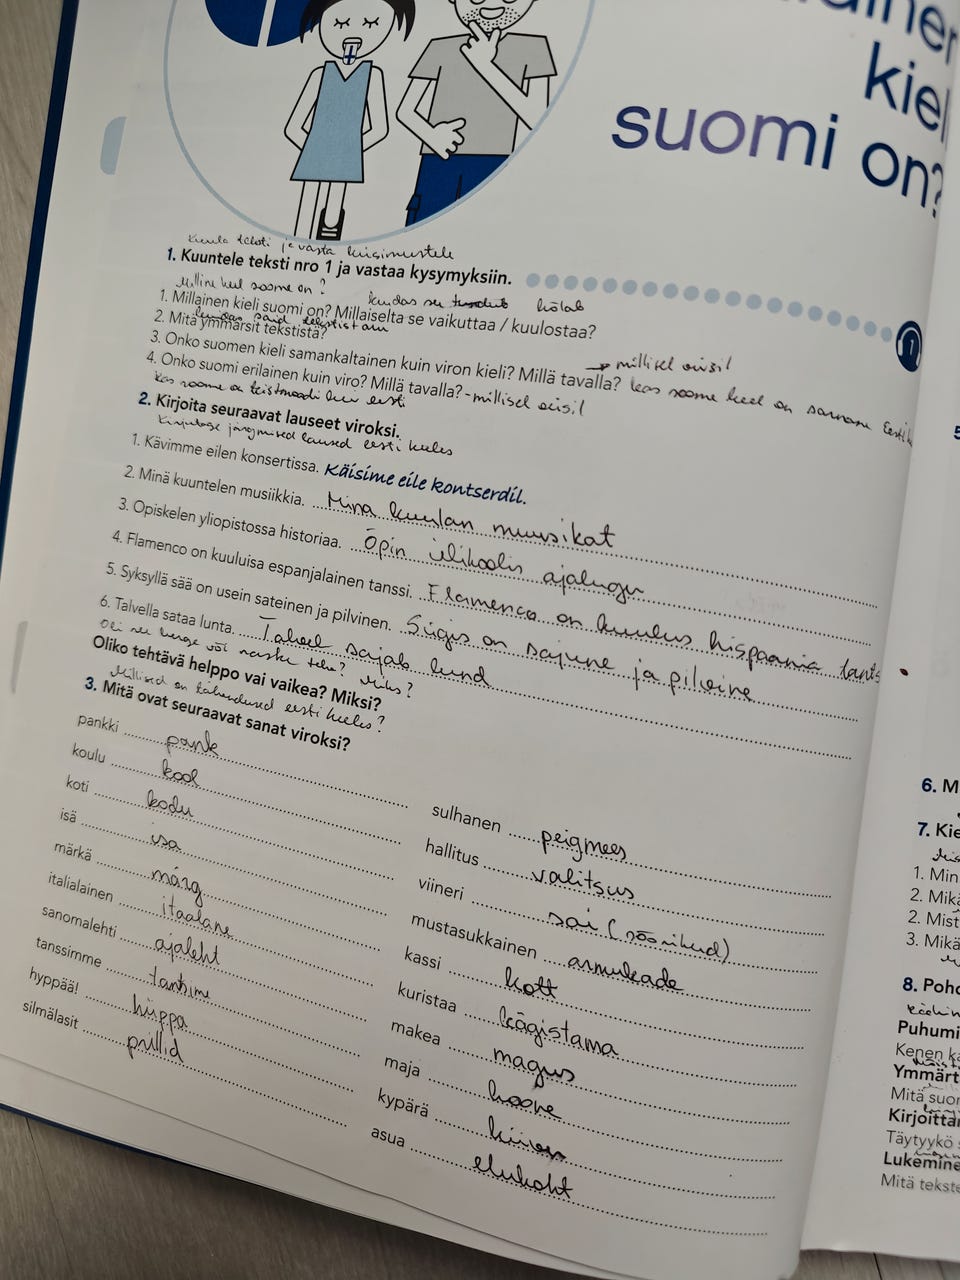 kiel
suomi on?
Kuula teksti ja vasta küsimustele
1. Kuuntele teksti nro 1 ja vastaa kysymyksiin.
1
Milline keel soome on?
kuidas see tundub kõlab
1. Millainen kieli suomi on? Millaiselta se vaikuttaa / kuulostaa?
said tekstist aru
2. Mitä ymmärsit tekstistä?
3. Onko suomen kieli samankaltainen kuin viron kieli? Millä tavalla? → millisel viisil
kas soome keel on sarnane Eesti k
4. Onko suomi erilainen kuin viro? Millä tavalla? - millisel viisil
kas soome on teistmoodi kui eesti
2. Kirjoita seuraavat lauseet viroksi.
Kirjutage järgmised laused eesti keeles
1. Kävimme eilen konsertissa. Käisime eile kontserdil.
2. Minä kuuntelen musiikkia. Mina kuulan muusikat
3. Opiskelen yliopistossa historiaa. Õpin ülikoolis ajalugu
4. Flamenco on kuuluisa espanjalainen tanssi. Flamenco on kuulus hispaania tants
5. Syksyllä sää on usein sateinen ja pilvinen. Sügis on sajune ja pilvine
6. Talvella sataa lunta. Talvel sajab lund
Oli see kerge või raske teha? Miks?
Oliko tehtävä helppo vai vaikea? Miksi?
Millised on tähendused eesti keeles?
3. Mitä ovat seuraavat sanat viroksi?
pankki pank
koulu kool
koti kodu
isä isa
märkä märg
italialainen itaalane
sanomalehti ajaleht
tanssimme tantsime
hyppää! hüppa
silmälasit prillid
sulhanen peigmees
hallitus valitsus
viineri sai (söönikud)
mustasukkainen armukade
kassi kott
kuristaa kägistama
makea magus
maja hoone
kypärä kiiver
asua elukoht
5
6. M
7. Kie
1. Min
2. Mikä
2. Mist
3. Mikä
8. Poho
Puhumi
Kenen ka
Ymmärt
Mitä suor
Kirjoittar
Täytyykö s
Lukemine
Mitä tekste